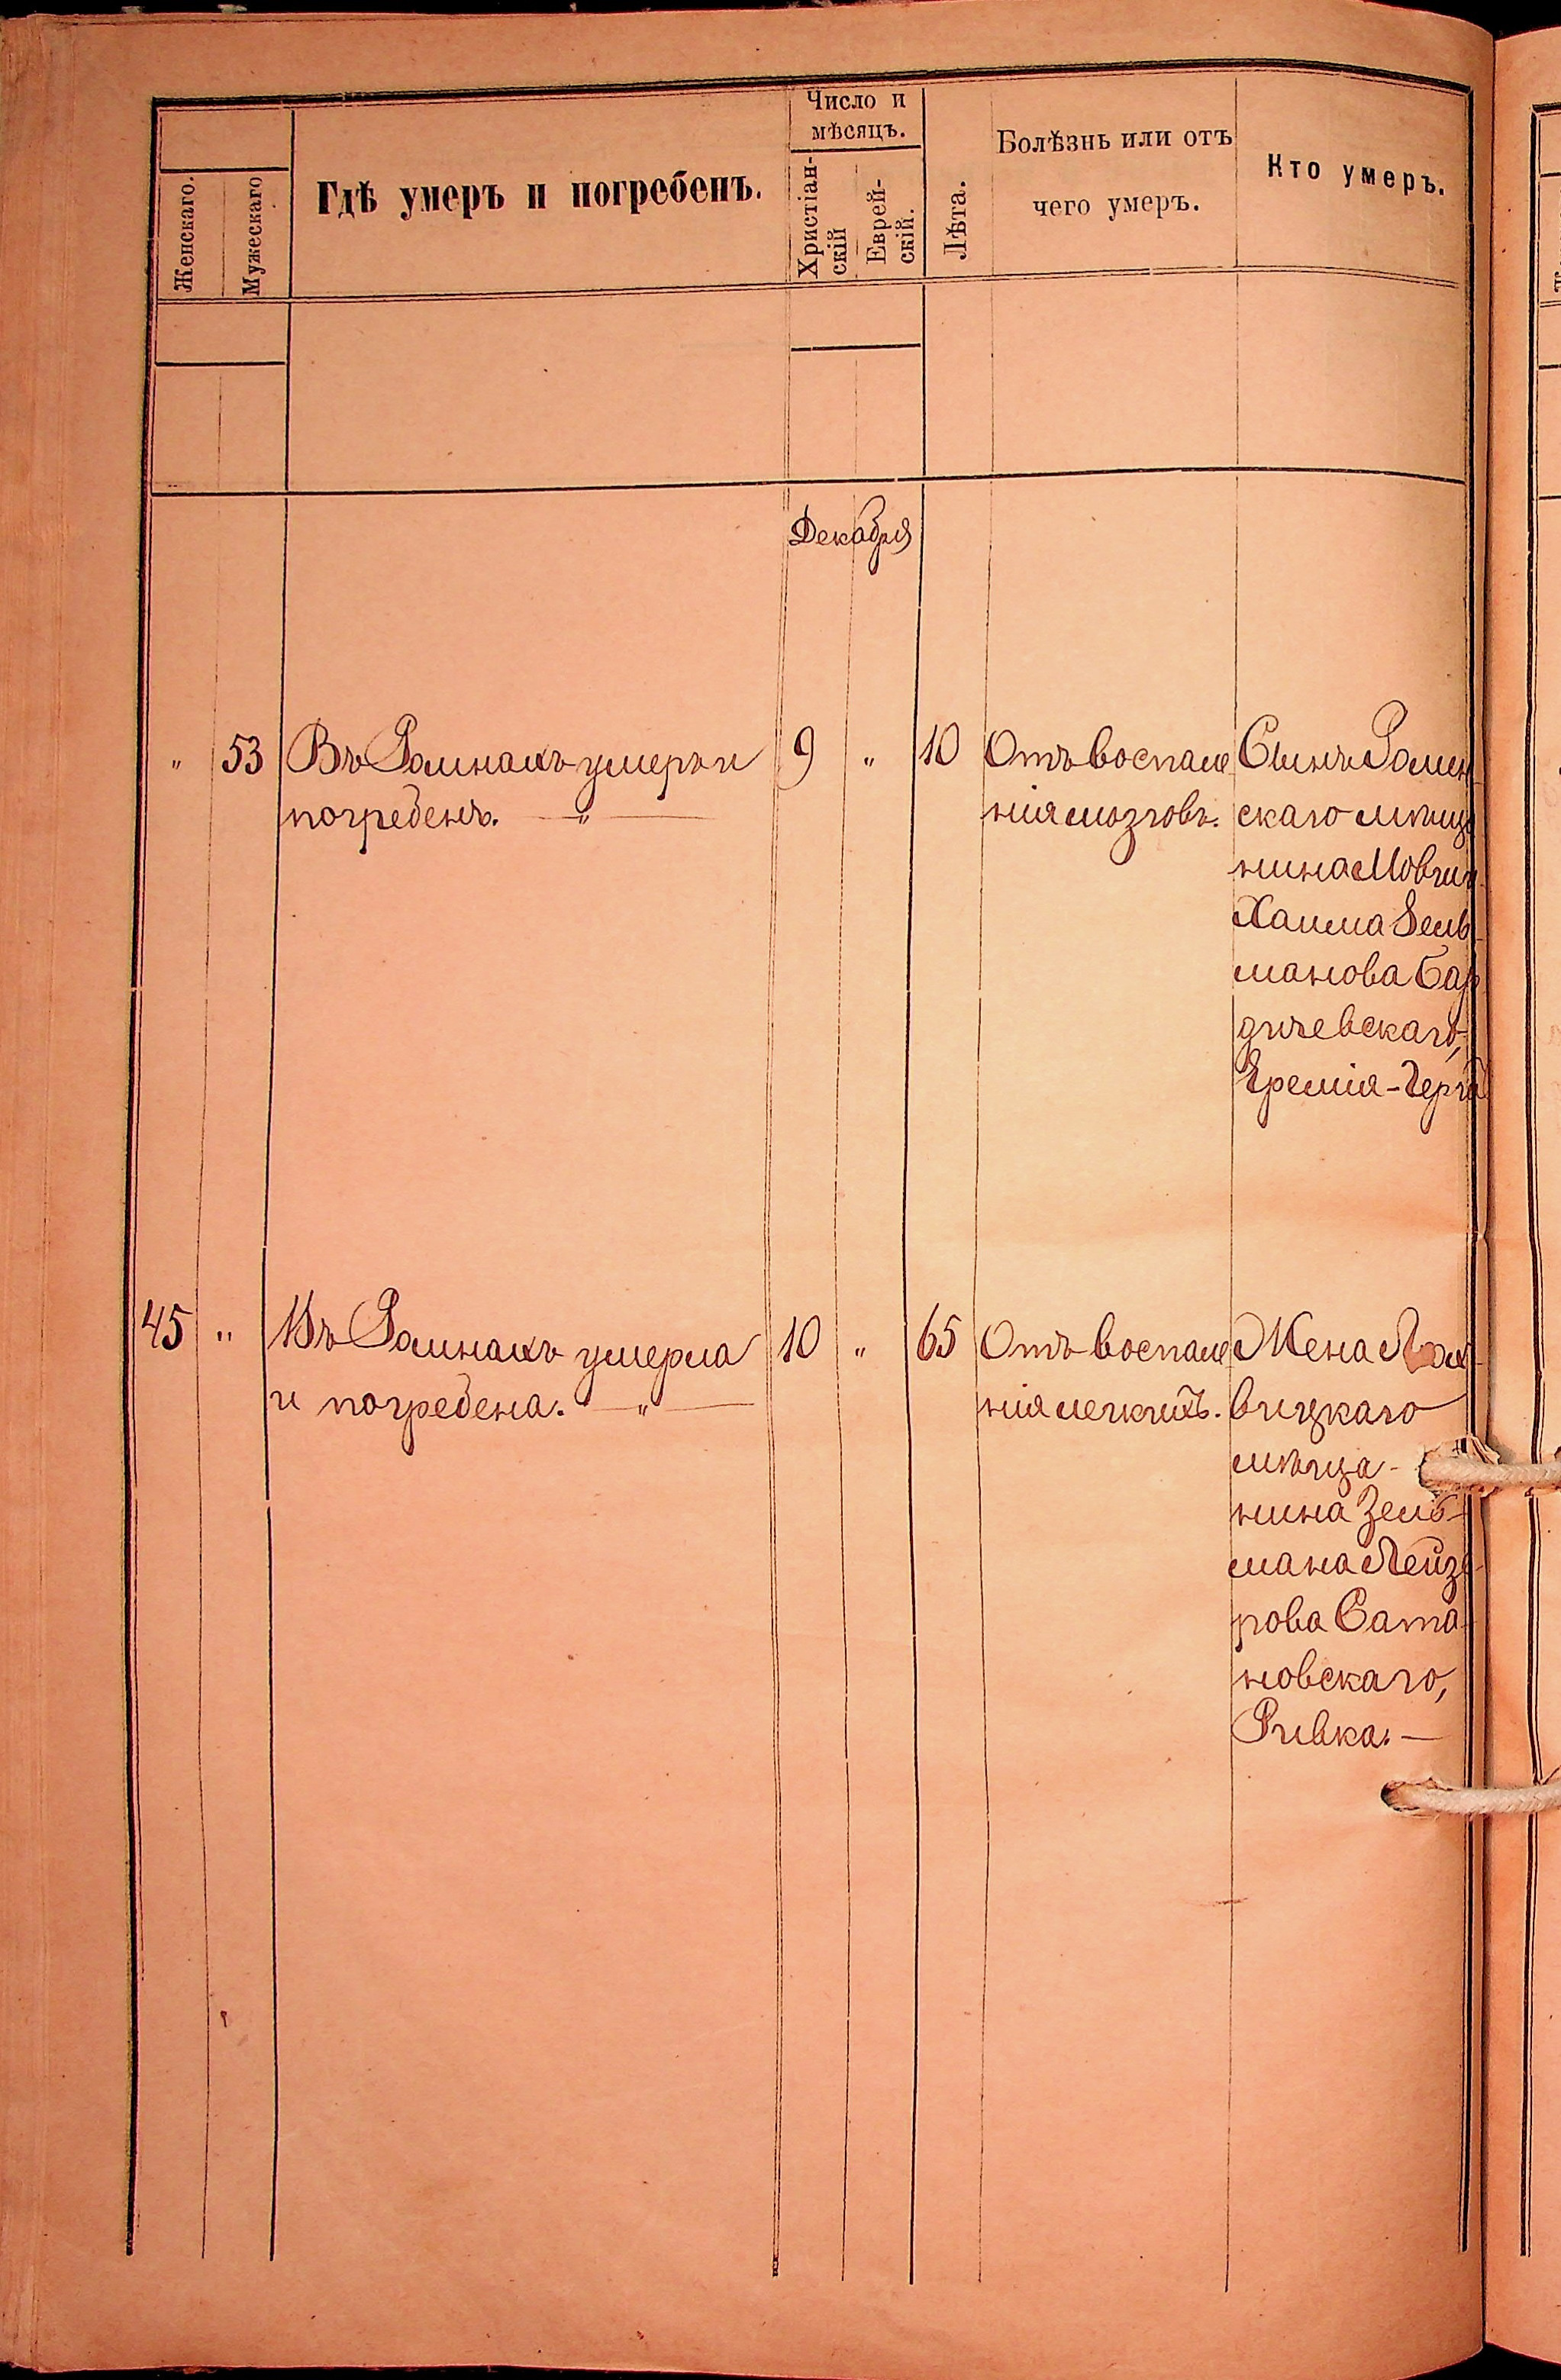 Число и
мѣсяцъ.
Женскаго.
Мужескаго
Гдѣ умеръ и погребенъ.
Христіан-
скій
Еврей-
скій.
Лѣта.
Болѣзнь или отъ
чего умеръ.
Кто умеръ.
Декабря
" 53 Въ Ромнахъ умеръ и 9 " 10 Отъ воспале Сынъ Ромен
погребенъ. — " — нія мозговъ. скаго мѣща
нина Мовши-
Хаима Зель-
манова Бар
дичевскаго,
Еремія-Герцъ
45 " Въ Ромнахъ умерла 10 " 65 Отъ воспале Жена
и погребена. — " — нія легкихъ. вицкаго
мѣща-
нина Зель-
мана Лейзе
рова Сата
новскаго,
Ривка. —